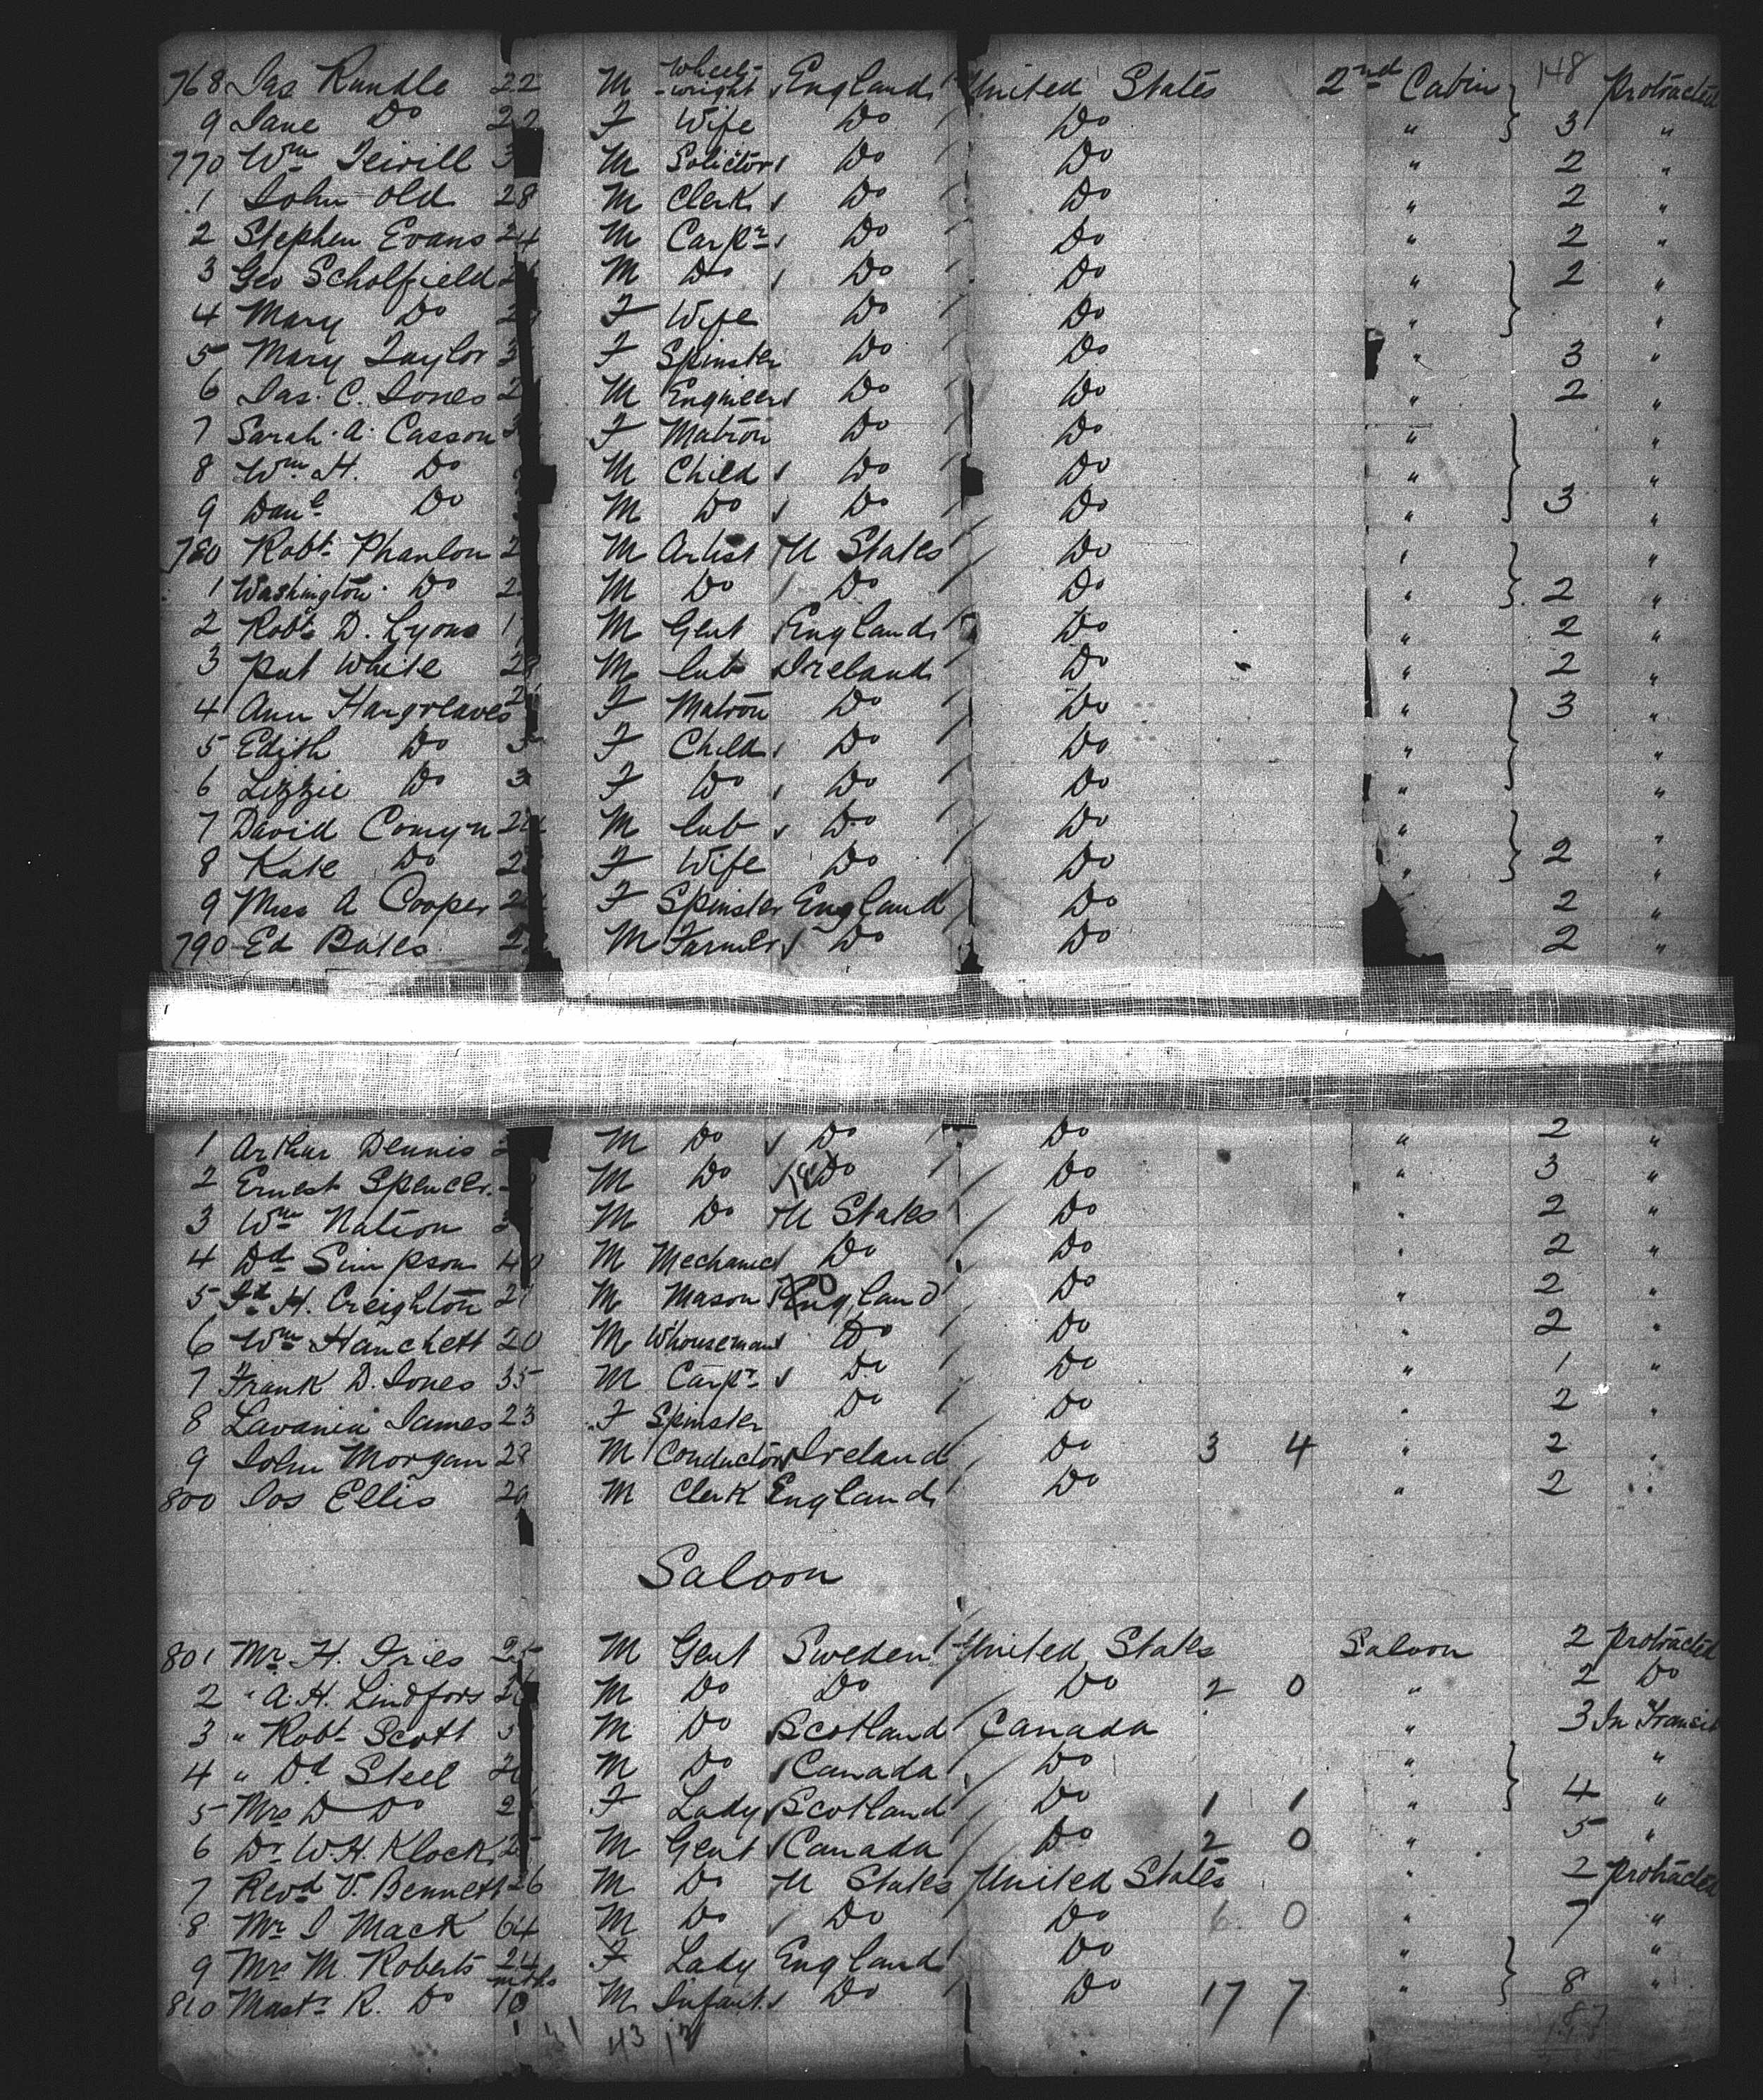 768 Jas Rundle 22 M Wheel-wright England United States 2nd Cabin 148 Protracted
9 Jane Do 22 F Wife Do Do " 3 "
770 Wm 3 M Solicitor Do Do " 2 "
1 John Old 28 M Clerk Do Do " 2 "
2 Stephen Evans 24 M Carpr Do Do " 2 "
3 Geo Scholfield 2 M Do Do Do " 2 "
4 Mary Do 2 F Wife Do Do " "
5 Mary Taylor 3 F Spinster Do Do " 3 "
6 Jas. C. Jones 2 M Engineer Do Do " 2 "
7 Sarah A. Casson 3 F Matron Do Do " "
8 Wm H. Do M Child Do Do " "
9 Danl Do M Do Do Do " 3 "
780 Robt Phanlon 2 M Artist U States Do " "
1 Washington Do 2 M Do Do Do " 2 "
2 Robt D. Lyons 1 M Gent England Do " 2 "
3 Pat White 28 M Lab Ireland Do " 2 "
4 Ann Hargreaves 2 F Matron Do Do " 3 "
5 Edith Do 5 F Child Do Do " "
6 Lizzie Do 3 F Do Do Do " "
7 David Comyn 22 M Lab Do Do " "
8 Kate Do 2 F Wife Do Do " 2 "
9 Miss A Cooper 2 F Spinster England Do 2 "
790 Ed Bates 2 M Farmer Do Do 2 "
1 Arthur Dennis M Do Do Do " 2 "
2 Ernest Spencer M Do Do Do " 3 "
3 Wm Nation 3 M Do U States Do " 2 "
4 Dd Simpson 40 M Mechanic Do Do " 2 "
5 H. Creighton 21 M Mason England Do " 2 "
6 Wm Hanchett 20 M Whouseman Do Do " 2 "
7 Frank D. Jones 35 M Carpr Do Do " 1 "
8 Lavania James 23 F Spinster Do Do " 2 "
9 John Morgan 28 M Conductor Ireland Do 3 4 " 2 "
800 Jos Ellis 29 M Clerk England Do " 2 "
Saloon
801 Mr H. Fries 25 M Gent Sweden United States Saloon 2 Protracted
2 " A. H. Lindfors 2 M Do Do Do 2 0 " 2 Do
3 " Robt Scott 3 M Do Scotland Canada " 3 In Transit
4 " Dd Steel 2 M Do Canada Do " "
5 Mrs D Do 2 F Lady Scotland Do 1 1 " 4 "
6 Dr W. H. Klock 25 M Gent Canada Do 2 0 " 5 "
7 Revd V. Bennett 26 M Do U States United States " 2 Protracted
8 Mr J Mack 64 M Do Do Do 6 0 " 7 "
9 Mrs M. Roberts 24 F Lady England Do " "
810 Mastr R. Do 10 mths M Infant Do Do 17 7 " 8 "
43 12